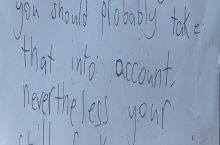 you should probably take
that into account,
nevertheless your